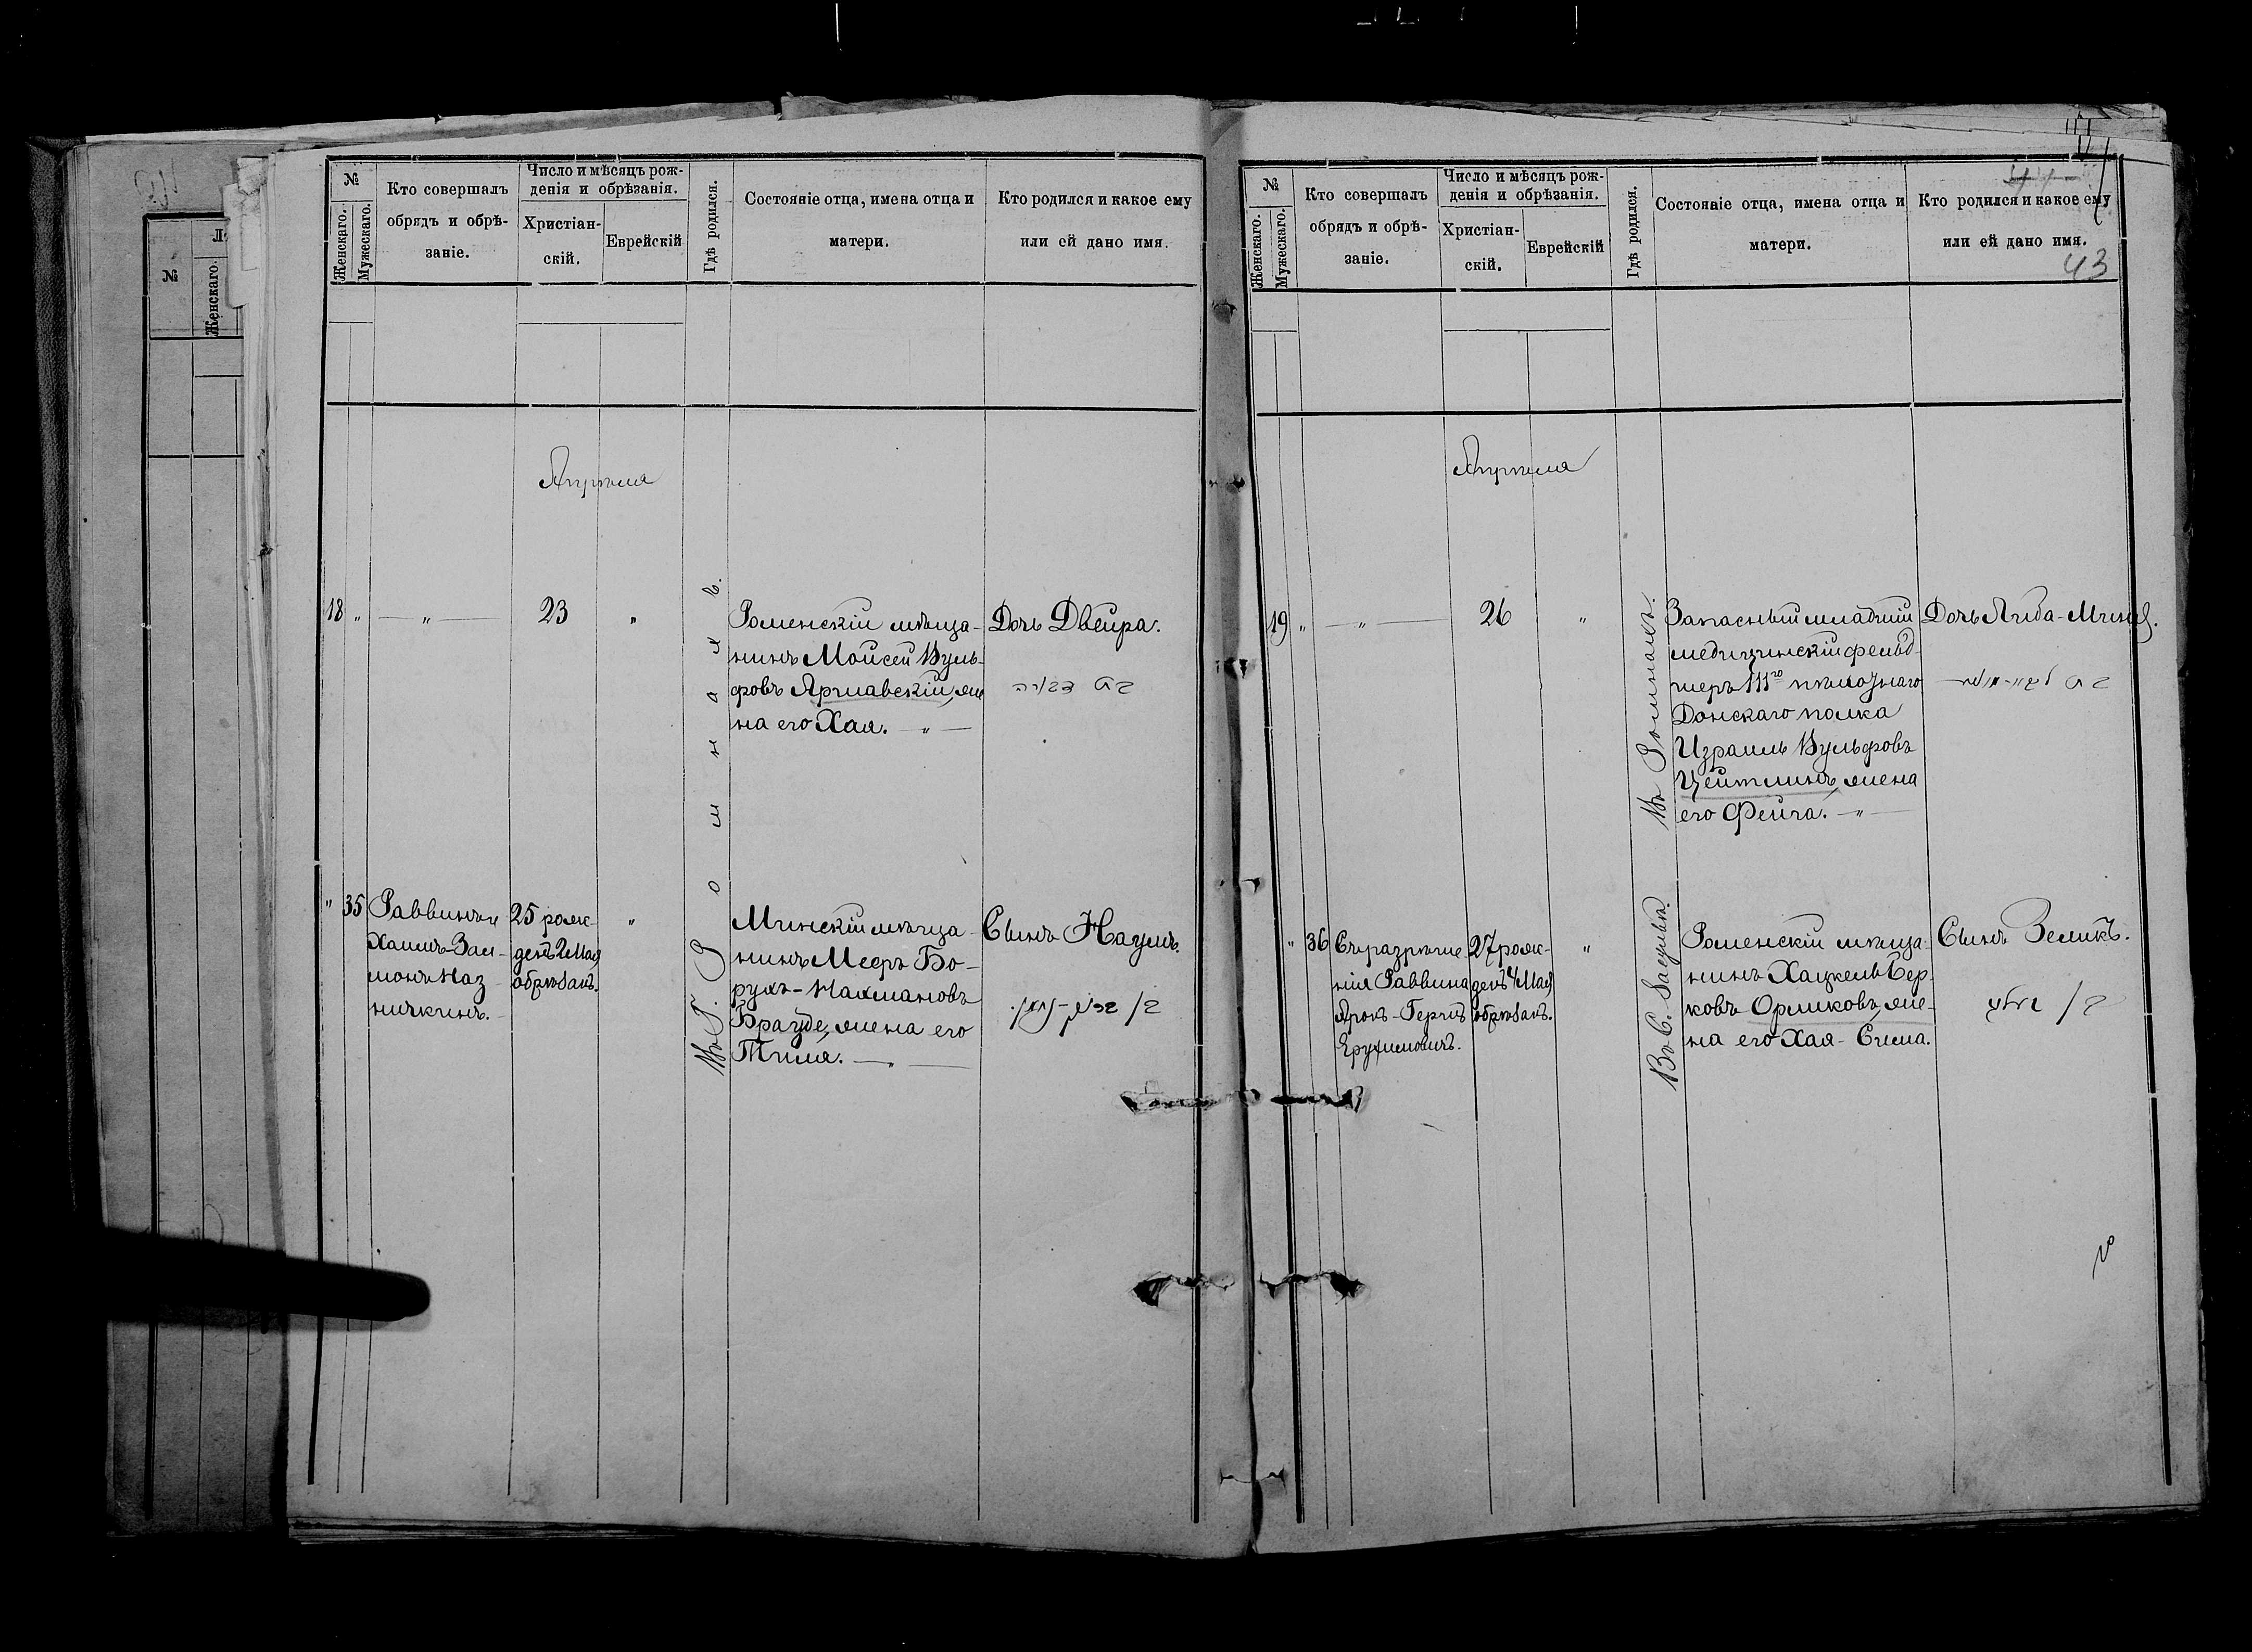 №
Женскаго.
Мужескаго.
Кто совершалъ
обрядъ и обрѣ-
заніе.
Число и мѣсяцъ рож-
денія и обрѣзанія.
Христіан-
скій.
Еврейскій
Гдѣ родился.
Состояніе отца, имена отца и
матери.
Кто родился и какое ему
или ей дано имя.
Апрѣля
18 „ — „ —
23
„
Роменскій мѣща-
нинъ Моисей Вуль-
фовъ Ярчавскій, же
на его Хая. — „ —
Дочь Двейра.
въ Г. Ромнахъ.
„ 35
Раввинъ и
Хаимъ-Зал-
монъ Наз
ничкинъ.
25 рож-
денъ 2 Мая
обрѣзанъ.
„
Минскій мѣща-
нинъ Мееръ Бо-
рухъ-Нахмановъ
Брауде, жена его
Тиля. — „ —
Сынъ Наумъ.
№
Женскаго.
Мужескаго.
Кто совершалъ
обрядъ и обрѣ-
заніе.
Число и мѣсяцъ рож-
денія и обрѣзанія.
Христіан-
скій.
Еврейскій
Гдѣ родился.
Состояніе отца, имена отца и
матери.
Кто родился и какое ему
или ей дано имя.
43
Апрѣля
19 „ — „ —
26
„
въ Ромнахъ.
Запасный младшій
медицинскій фельд-
шеръ 111го пѣхотнаго
Донскаго полка
Израиль Вульфовъ
Цейтлинъ, жена
его Фейга. — „ —
Дочь Либа-
„ 36
Съ разрѣше
нія Раввина
Аронъ-Герцъ
Ерухимовичъ.
27 рож-
денъ 4 Мая
обрѣзанъ.
„
Въ С.
Роменскій мѣща-
нинъ Хацкель Бер-
ковъ Орликовъ, же-
на его Хая-Сима.
Сынъ Зеликъ.